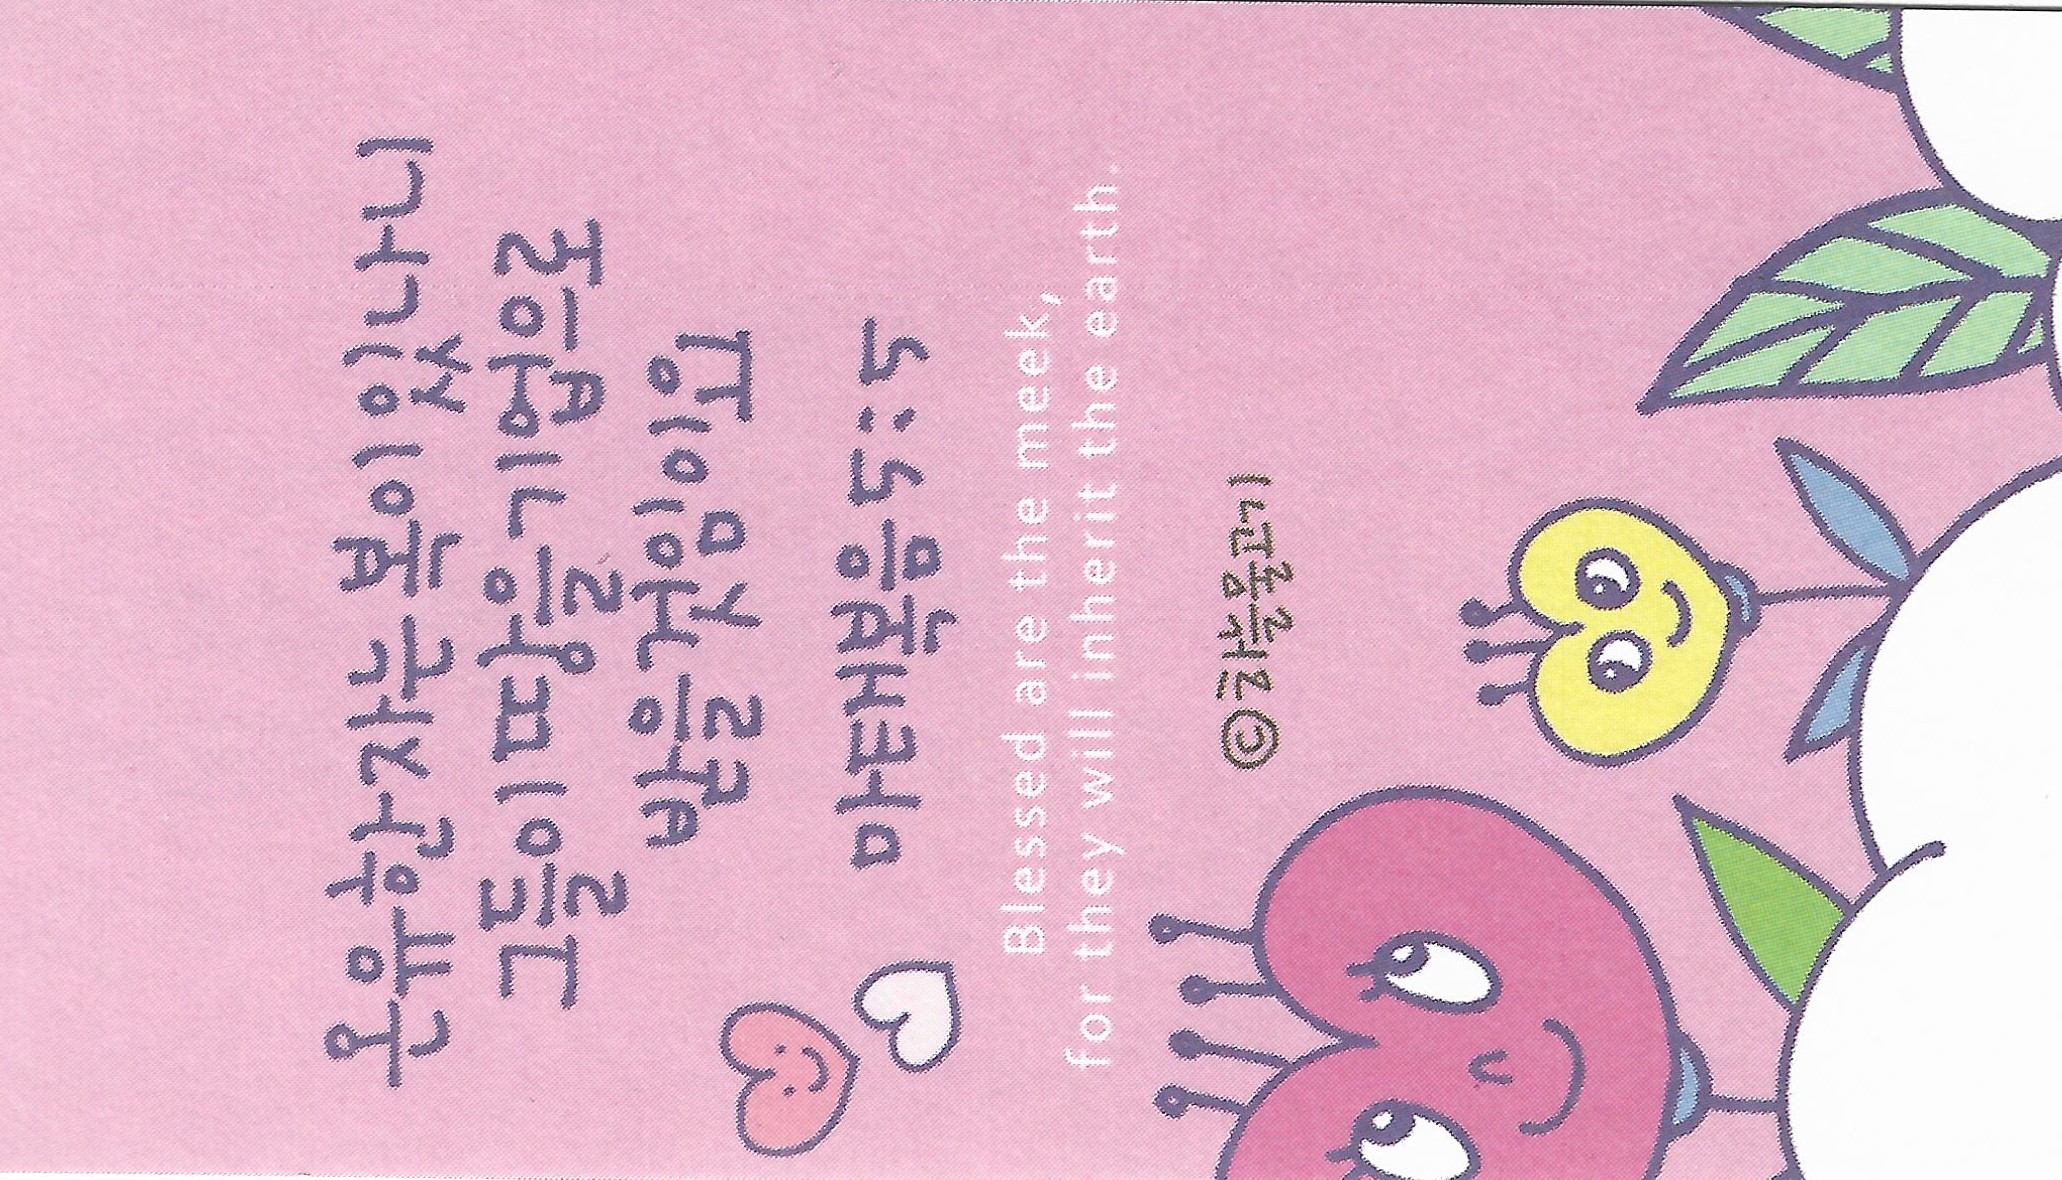 온유한 자는 복이 있나니
그들이 땅을 기업으로
받을 것임이요
마태복음 5:5
Blessed are the meek,
for they will inherit the earth.
©하늘물고기